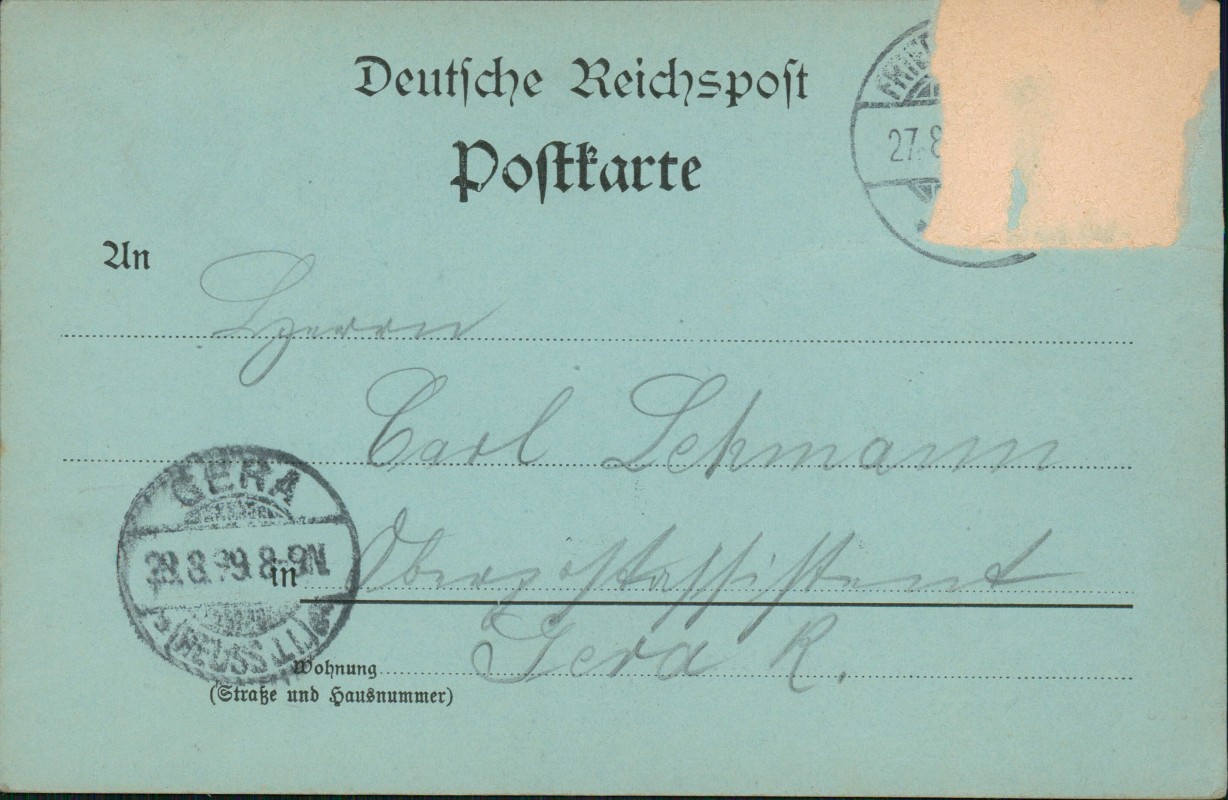 Deutsche Reichspost
Postkarte
27.8
An
Herrn
Carl Lehmann
GERA
28.8.99.8-9N
(REUSS J.L.)
in Oberpostassistent
Gera R.
Wohnung
(Straße und Hausnummer)